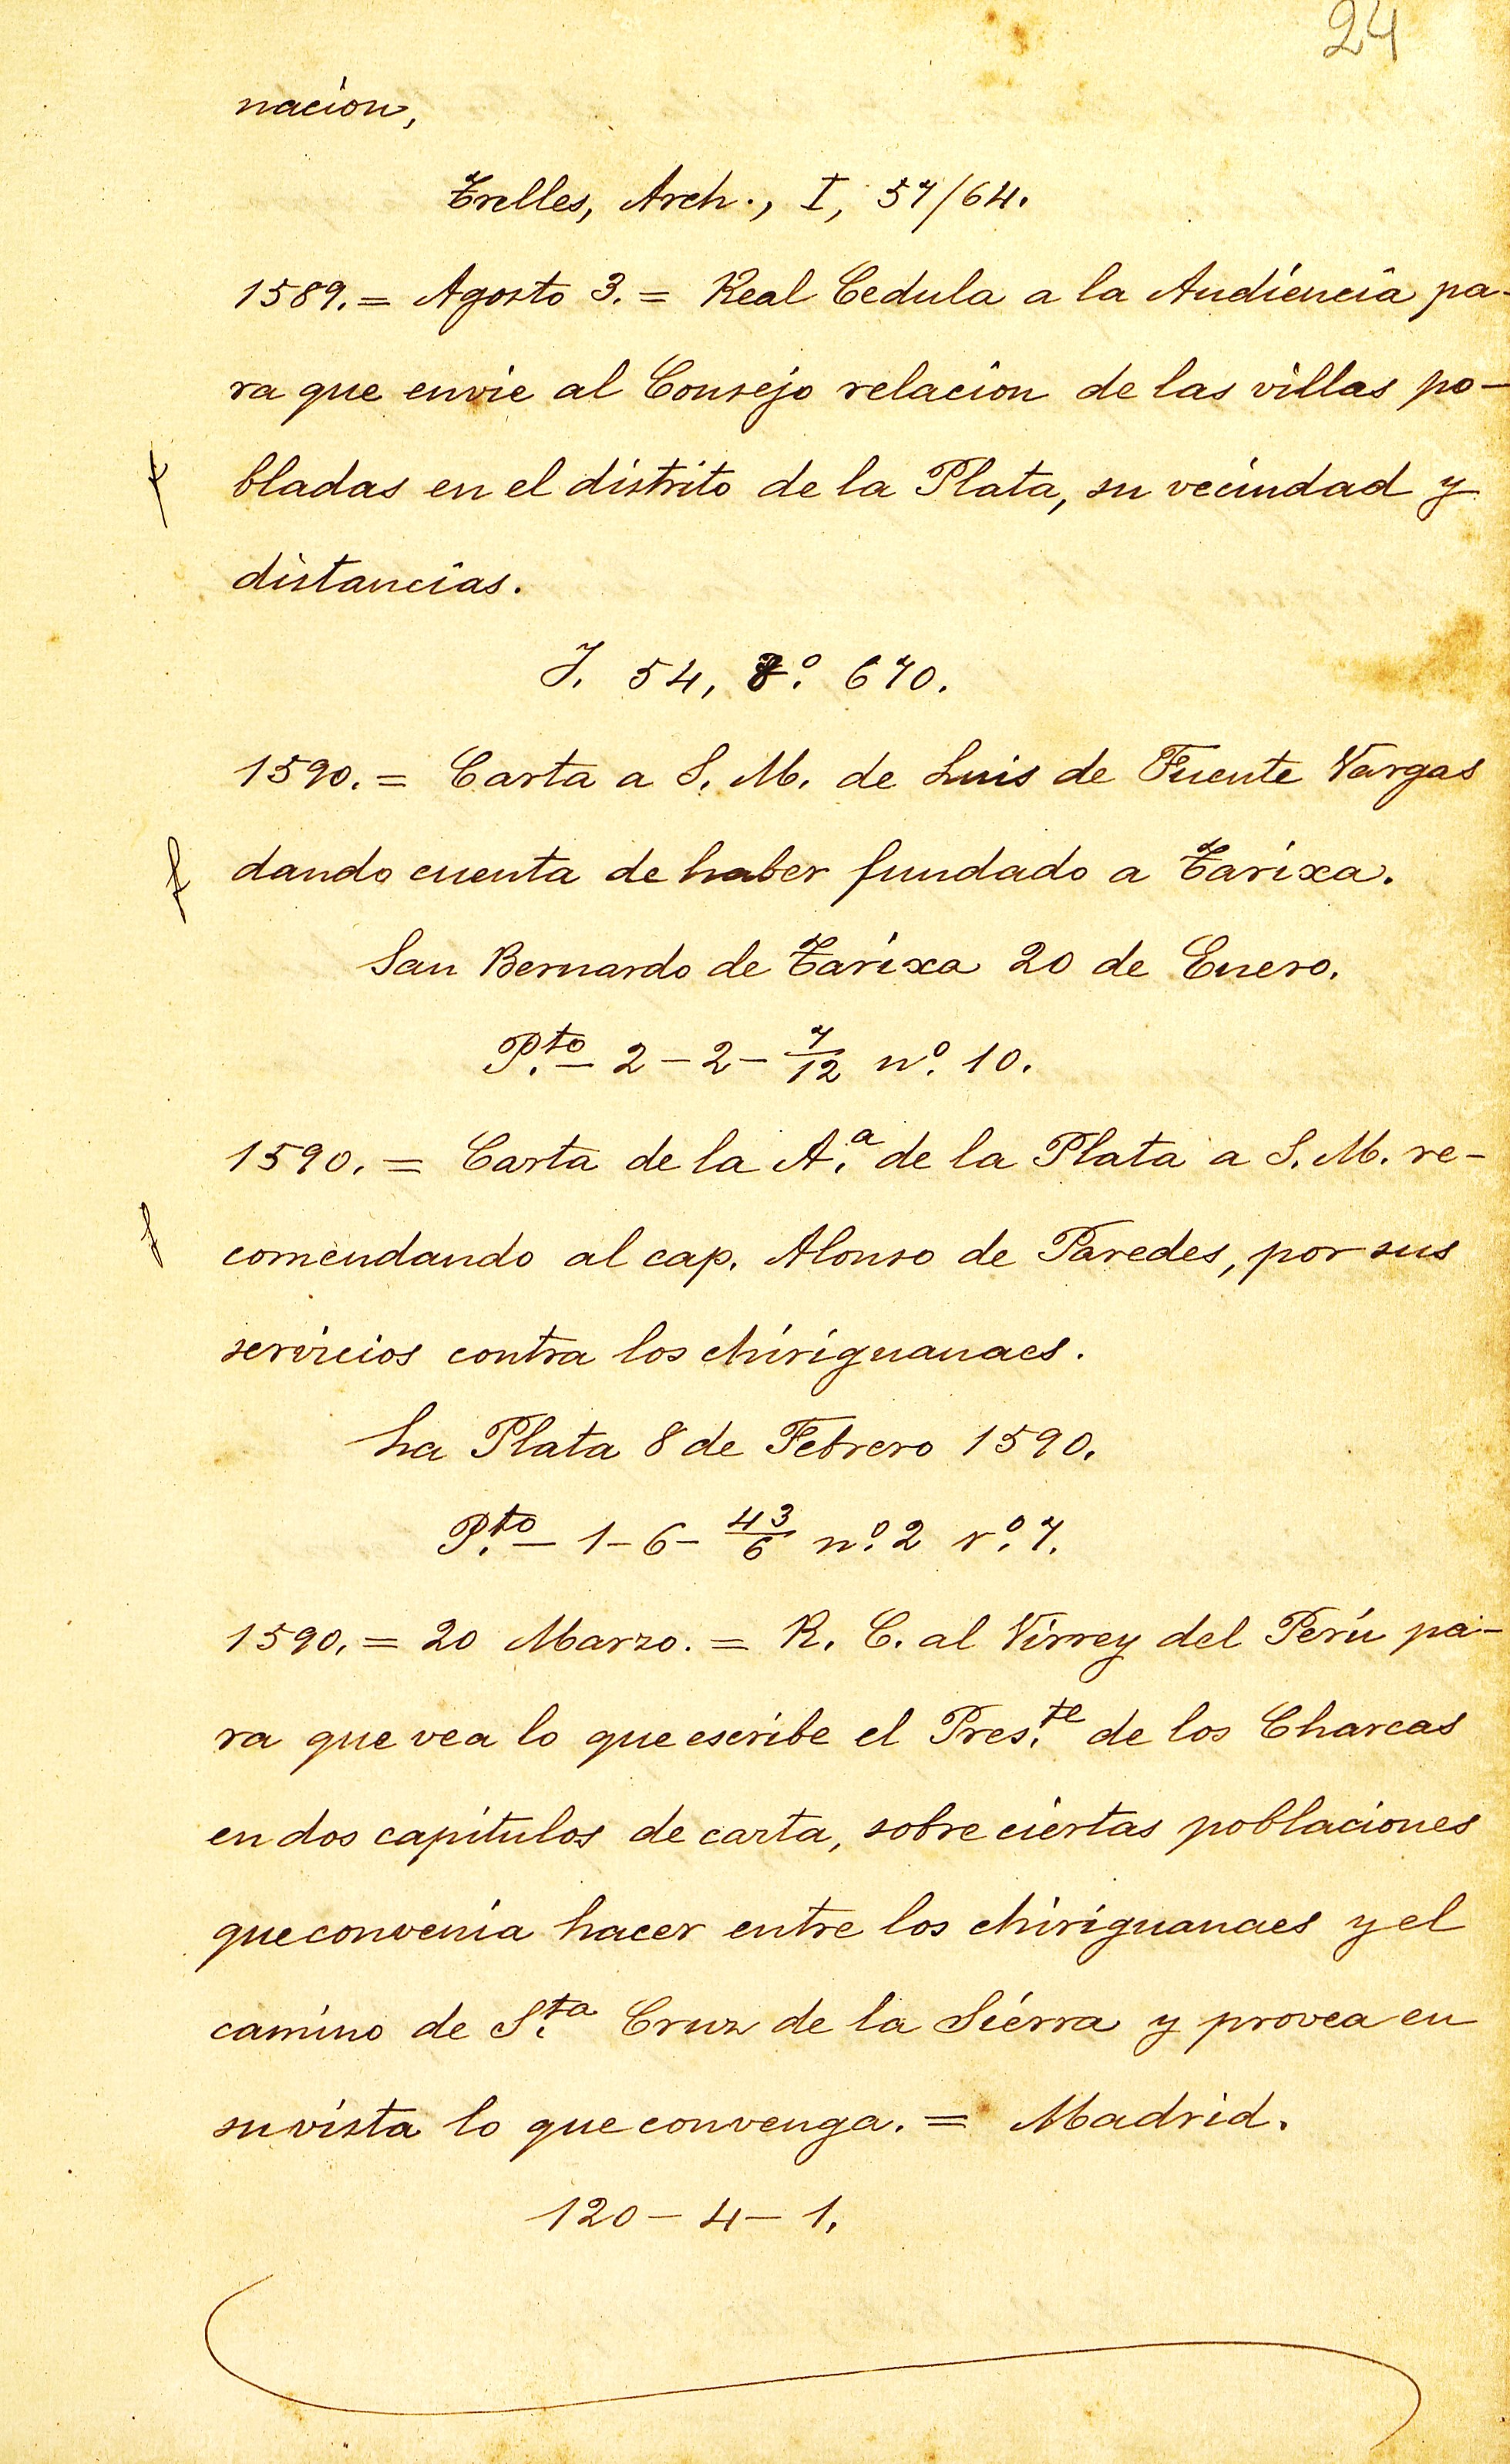 24
nacion,
Trelles, Arch., I, 57/64.
1589. = Agosto 3. = Real Cedula a la Audiencia pa-
ra que envie al Consejo relacion de las villas po-
bladas en el distrito de la Plata, su vecindad y
distancias.
J. 54, 8º. 670.
1590. = Carta a S. M. de Luis de Fuente Vargas
dando cuenta de haber fundado a Tarixa.
San Bernardo de Tarixa 20 de Enero.
P.to – 2 – 2 – 7/12 nº. 10.
1590. = Carta de la A.a de la Plata a S. M. re-
comendando al cap. Alonso de Paredes, por sus
servicios contra los chiriguanaes.
La Plata 8 de Febrero 1590.
P.to – 1 – 6 – 43/6 nº. 2 rº. 7.
1590. = 20 Marzo. = R. C. al Virrey del Perú pa-
ra que vea lo que escribe el Pres.te de los Charcas
en dos capítulos de carta, sobre ciertas poblaciones
que convenia hacer entre los chiriguanaes y el
camino de S.ta Cruz de la Sierra y provea en
su vista lo que convenga. = Madrid.
120 – 4 – 1.